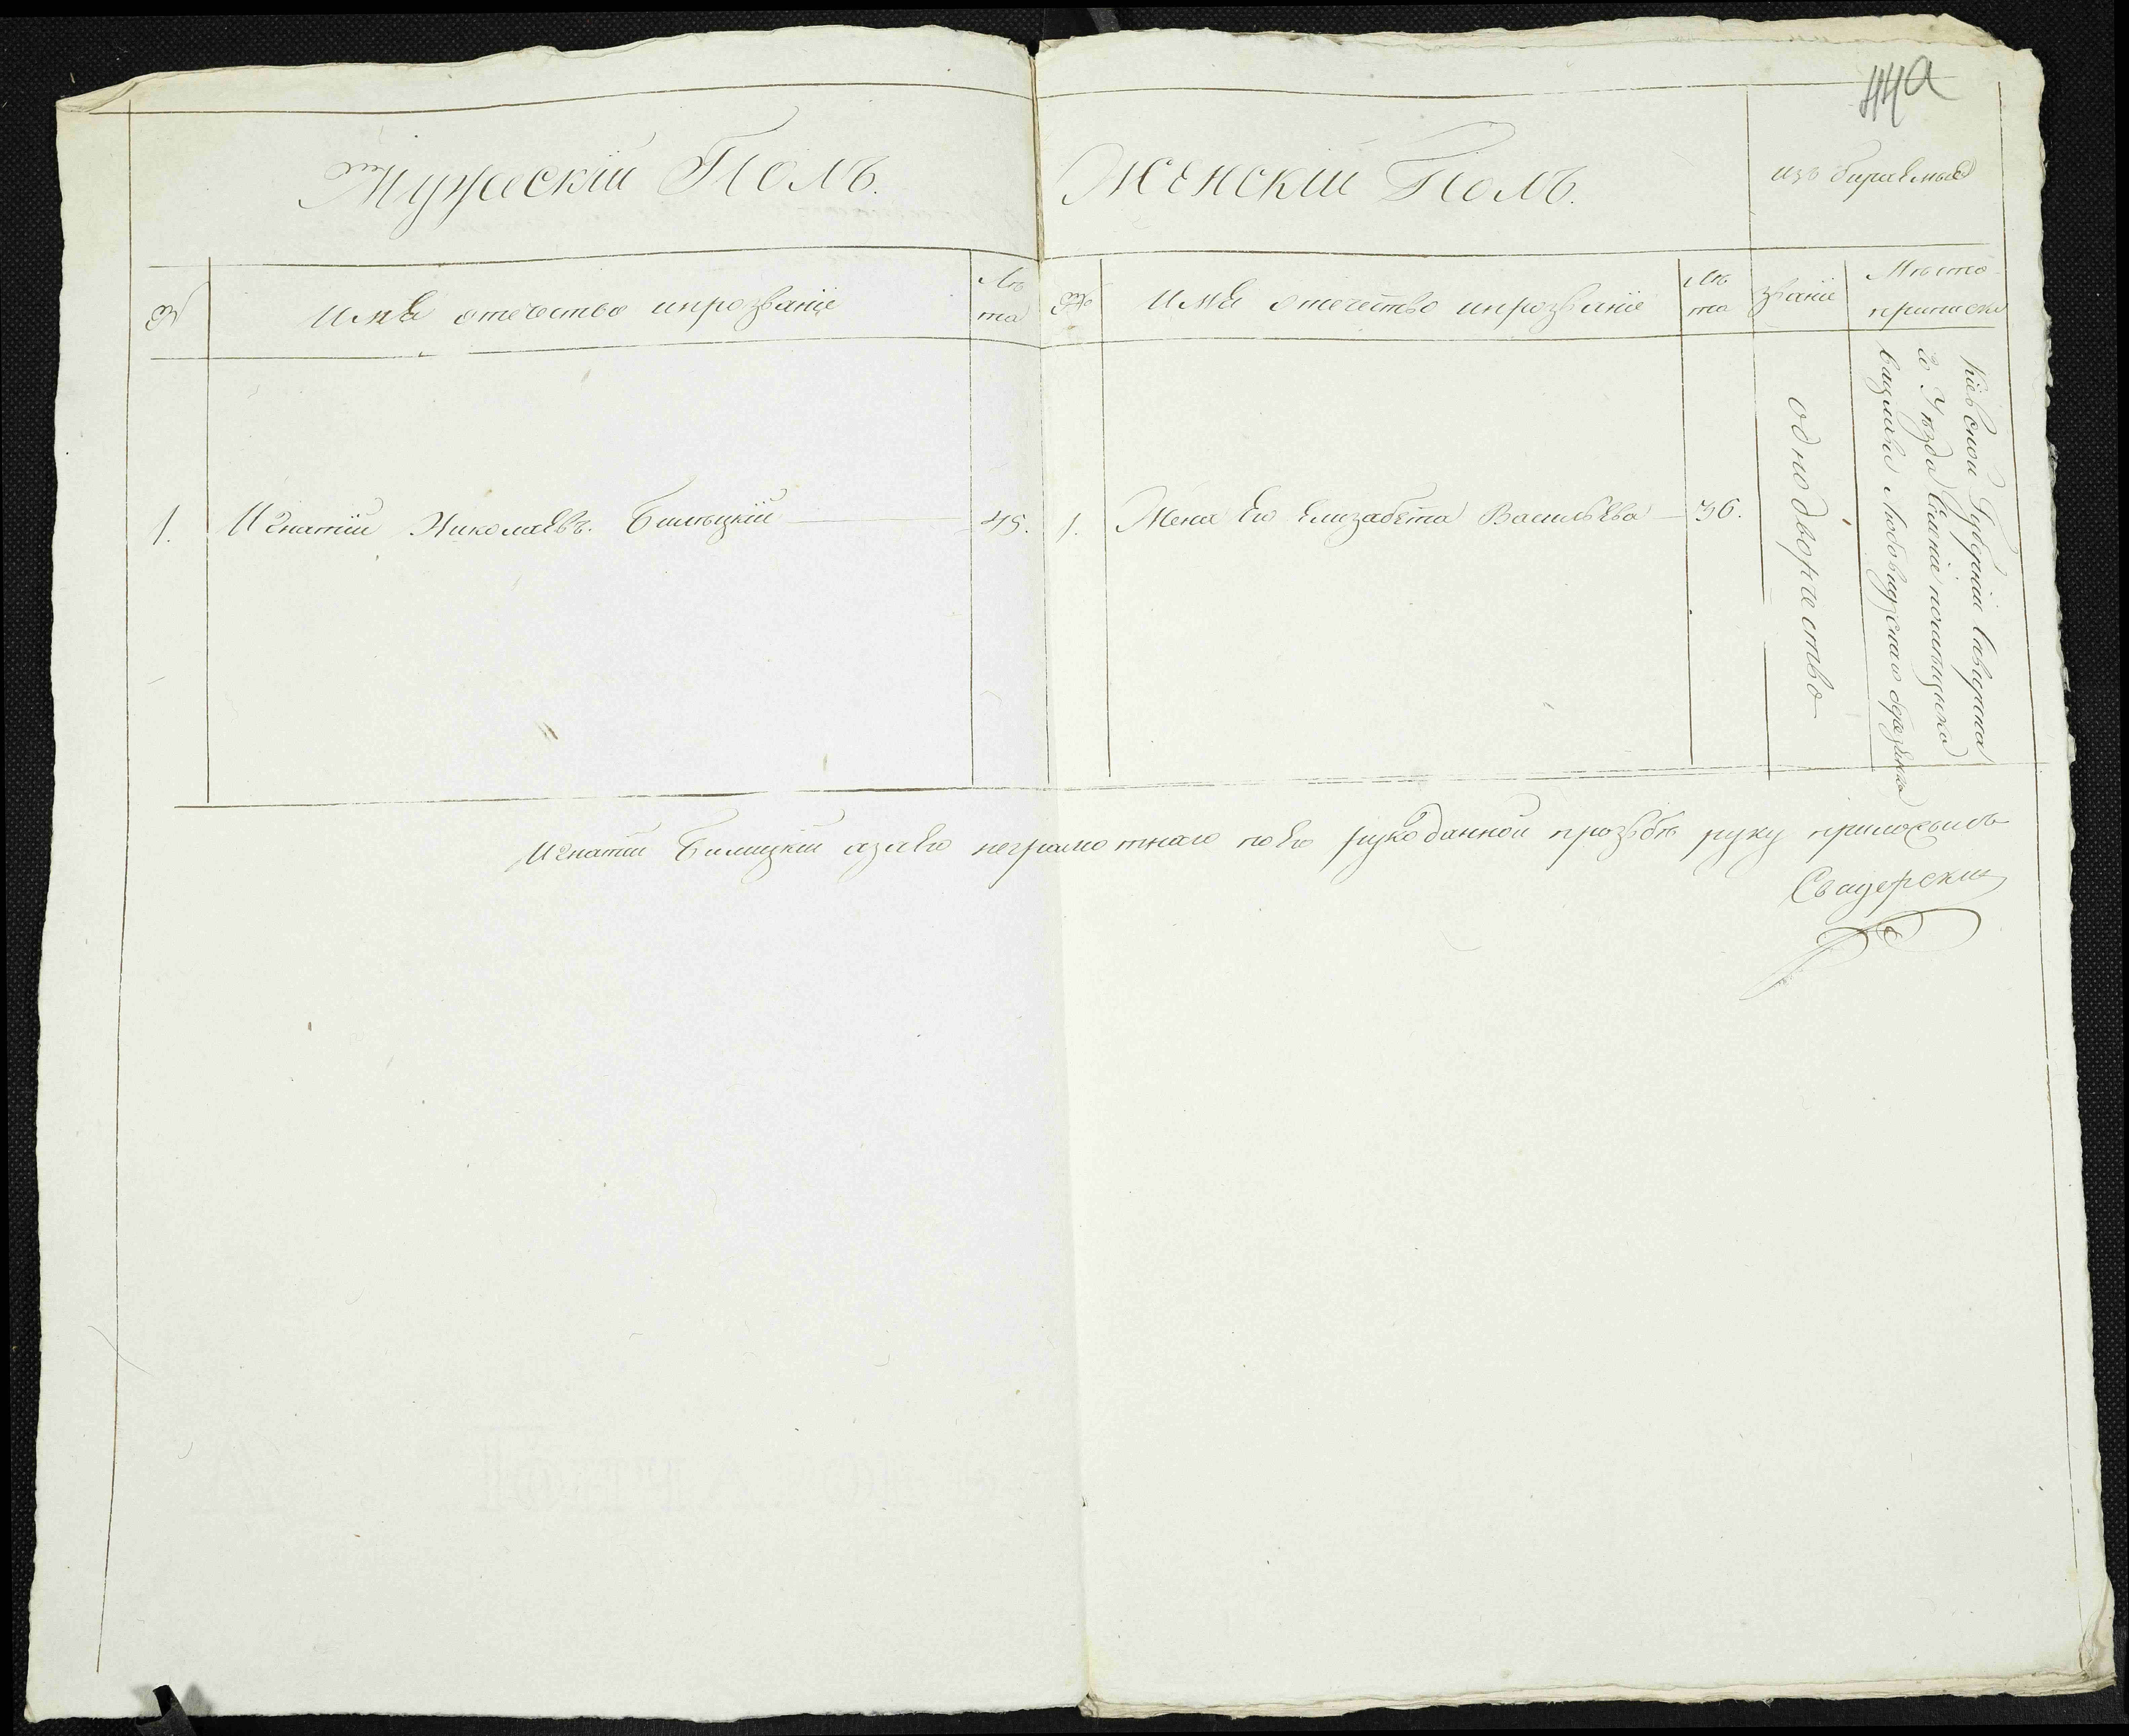 44а
Мужескій Полъ.
Женскій Полъ.
изъ бираемые
№
имя отечество ипрозваніе
Лѣ
та
№
имя отечество ипрозваніе
Лѣ
та
званіе
Место
приписки
1. Игнатій Николаевъ. Билецкій 45.
1. Жена его Елизабета Васильева 36.
однодворчество
Кіевской Губерніи
го Уезда
Игнатий Билицкий азаего неграмотнаго поего рукоданной прозьбѣ руку приложилъ
Свидерский